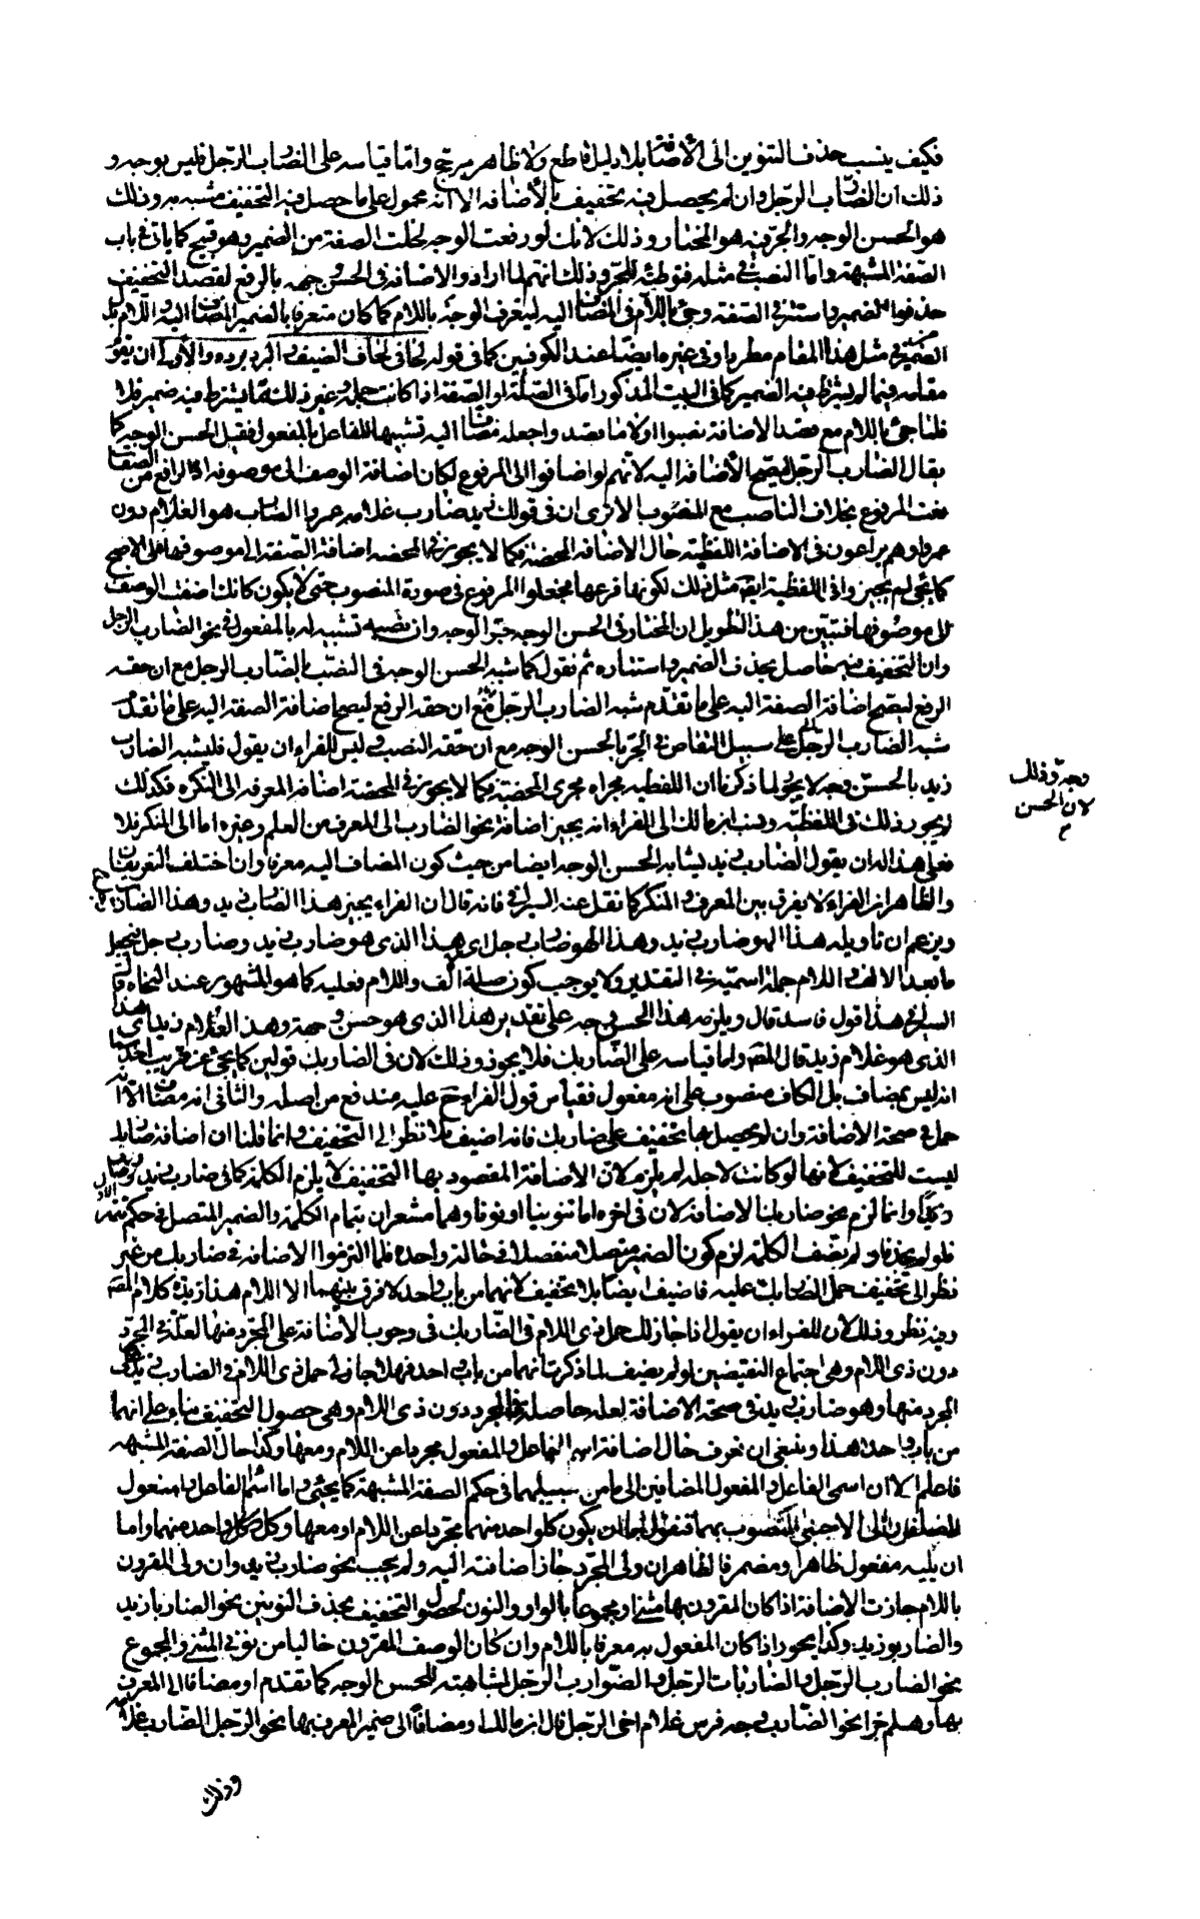 فكيف ينسب حذف التنوين الى الأضافة بلا دليل قاطع ولا ظاهر مرجح واما قياسه على الضارب الرجل فليس بوجه و
ذلك ان الضارب الرجل وان لم يحصل فيه تخفيف بالأضافة الا انه محمول على ما حصل فيه التخفيف مشبه به وذلك
هو الحسن الوجه والجر فيه هو المختار وذلك لانك لو رفعت الوجه لخلت الصفة من الضمير وهو قبيح كما ياتى فى باب
الصفة المشبهة واما النصب فى مثله فتوطئة للجر وذلك انهم لما ارادوا الاضافة فى الحسن وجهه بالرفع لقصد التخفيف
حذفوا الضمير واستتر فى الصفة وجئ باللام فى المضاف اليه ليتعرف الوجه باللام كما كان متعرفا بالضمير المضاف اليه واللام بدل
الضمير فى مثل هذا المقام مطردا وفى غيره ايضا عند الكوفيين كما فى قوله لحافى لحاف الضيف والبرد برده والأولى ان يقوم
مقامه فيما لم يشترط فيه الضمير كما فى البيت المذكور اما فى الصلة او الصفة اذا كانت جملة وغير ذلك مما يشترط فيه ضمير فلا
فلما جئ باللام مع قصد الاضافة نصبوا اولا ما قصد واجعله مضافا اليه تشبيها للفاعل بالمفعول فقيل الحسن الوجه كما
يقال الضارب الرجل ليصح الأضافة اليه لانهم لو اضافوا الى المرفوع لكان اضافة الوصف الى موصوفه اذ الرافع من الصفات
نعت المرفوع بخلاف الناصب مع المنصوب الا ترى ان فى قولك زيد ضارب غلامه عمروا الضارب هو الغلام دون
عمرو وهم يراعون فى الاضافة اللفظية حال الاضافة المحضة فكما لا يجوز فى المحضة اضافة الصفة الى موصوفها على الاصح
كما يجئ لم يجيزوا فى اللفظية ايضا مثل ذلك لكونها فرعها فجعلوا المرفوع فى صورة المنصوب حتى لا يكون كانك اضفت الوصف
الى موصوفها فتبين من هذا التطويل ان المختار فى الحسن الوجه جر الوجه وان نصبه تشبيه له بالمفعول فى نحو الضارب الرجل
وان التخفيف فيه حاصل بحذف الضمير واستتاره ثم نقول كما شبه الحسن الوجه فى النصب بالضارب الرجل مع ان حقه
الرفع ليصح اضافة الصفة اليه على ما تقدم شبه الضارب الرجل مع ان حقه الرفع ليصح اضافة الصفة اليه على ما تقدم
شبه الضارب الرجل على سبيل التقاص فى الجر بالحسن الوجه مع ان حقه النصب وليس للفراء ان يقول فليشبه الضارب
زيد بالحسن وجه لا يجوز لما ذكرنا ان اللفظية مجراه مجرى المحضة فكما لا يجوز فى المحضة اضافة المعرفة الى النكرة فكذلك
لا يجوز ذلك فى اللفظية ونسب ابن مالك الى الفراء انه يجيز اضافة نحو الضارب الى المعرف من العلم وغيره اما الى المنكر فلا
فعلى هذا له ان يقول الضارب زيد ليشابه الحسن الوجه ايضا من حيث كون المضاف اليه معرفا وان اختلف التعريفان
والظاهر ان الفراء لا يفرق بين المعرف والمنكر كما نقل عنه السيرافى فانه قال ان الفراء يجيز هذا الضارب زيد وهذا الضارب رجل
ويزعم ان تاويله هذا الهو ضارب زيد وهذا الهو ضارب رجل اى هذا الذى هو ضارب زيد وضارب رجل فيجعل
ما بعد الالف واللام جملة اسمية فى التقدير ولا يوجب كون صلة الالف واللام فعلية كما هو المشهور عند النحاة قال
السيرافى هذا قول فاسد قال ويلزمه هذا الحسن وجه على تقدير هذا الذى هو حسن وجهه وهذا الغلام زيد اى هذا
الذى هو غلام زيد قال المص واما قياسه على الضاربك فلا يجوز وذلك لان فى الضاربك قولين كما يجئ عن قريب احدهما
انه ليس بمضاف بل الكاف منصوب على انه مفعول فقياس قول الفراء ح عليه مندفع من اصله والثانى انه مضاف الا انه
حمل فى صحة الاضافة وان لم يحصل بها تخفيف على ضاربك فانه اضيف بلا نظر الى التخفيف وانما قلنا ان اضافة ضاربك
ليست للتخفيف لانها لو كانت لاجله لم يلزم لان الأضافة المقصود بها التخفيف لا يلزم الكلمة كما فى ضارب زيد وضارب
زيدا وانما لزم نحو ضاربنا الاضافة لان فى اخره اما تنوينا او نونا وهما مشعران بتمام الكلمة والضمير المتصل فى حكم تتمة الاول
فلو لم يحذفا ولم يضف الكلمة لزم كون الضمير متصلا منفصلا فى حالة واحدة فلما التزموا الاضافة فى ضاربك من غير
نظر الى تخفيف حمل الضاربك عليه فاضيف ايضا بلا تخفيف لانهما من باب واحد لا فرق بينهما الا اللام هذا زبدة كلام المص
وفيه نظر وذلك لان للفراء ان يقول اذا جاز لك حمل ذى اللام فى الضاربك فى وجوب الأضافة على المجرد منها لعلة فى المجرد
دون ذى اللام وهى اجتماع النقيضين لو لم يضف لما ذكرت انهما من باب واحد فهلا جاز لى حمل ذى اللام فى الضارب زيد على
المجرد منها وهو ضارب زيد فى صحة الاضافة لعلة حاصلة فى المجرد دون ذى اللام وهى حصول التخفيف بناء على انهما
من باب واحد هذا وينبغى ان نعرف حال اضافة اسم الفاعل والمفعول مجردا عن اللام ومعها وكذا حال الصفة المشبهة
فاعلم الا ان اسمى الفاعل والمفعول المضافين الى ما من سببيهما فى حكم الصفة المشبهة كما يجئ واما اسم الفاعل والمفعول
المضافان الى الاجنبى المنصوب بهما فنقول اما ان يكون كل واحد منهما مجردا عن اللام او معها وكل واحد منهما واما
ان يليه مفعول ظاهر او مضمر فالظاهر ان ولى المجرد جاز اضافته اليه ولم يجب نحو ضارب زيد وان ولى المقرون
باللام جازت الاضافة اذا كان المقرون بها مثنى او مجموعا بالواو والنون لحصول التخفيف بحذف النونين نحو الضاربا زيد
والضاربو زيد وكذا يجوز اذا كان المفعول به معرفا باللام وان كان الوصف المقرون خاليا من نونى المثنى والمجموع
نحو الضارب الرجل والضاربات الرجل والضوارب الرجل لمشابهته للحسن الوجه كما تقدم او مضافا الى المعرف
بها وهلم جرا نحو الضارب وجه فرس غلام اخى الرجل قال ابن مالك او مضافا الى ضمير المعرف بها نحو الرجل الضارب غلامه
وجه وذلك
لان الحسن
م
وذلك